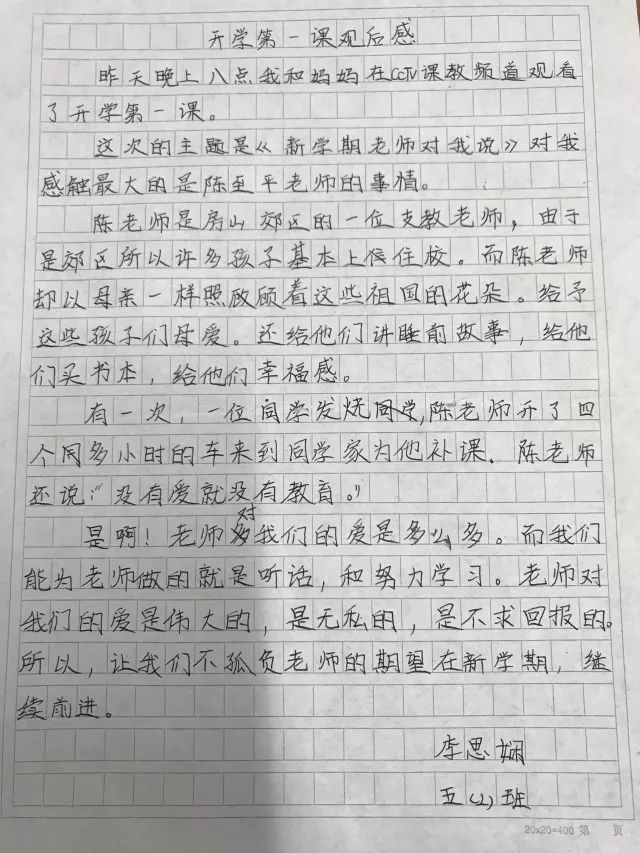 开学第一课观后感
昨天晚上八点我和妈妈在CCTV课教频道观看
了开学第一课。
这次的主题是《新学期老师对我说》对我
感触最大的是陈至平老师的事情。
陈老师是房山郊区的一位支教老师，由于
是郊区所以许多孩子基本上住校。而陈老师
却以母亲一样照顾着这些祖国的花朵。给予
这些孩子们母爱。还给他们讲睡前故事，给他
们买书本，给他们幸福感。
有一次，一位同学发烧同学，陈老师开了四
个同多小时的车来到同学家为他补课．陈老师
还说：“没有爱就没有教育。”
是啊！老师对我们的爱是多么多。而我们
能为老师做的就是听话，和努力学习。老师对
我们的爱是伟大的，是无私的，是不求回报的。
所以，让我们不孤负老师的期望在新学期，继
续前进。
李思娴
五(2)班
20×20=400 第 页